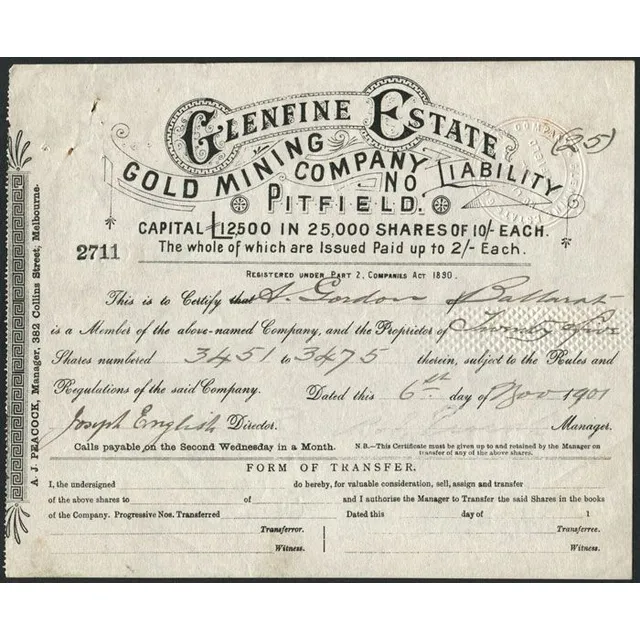 GLENFINE ESTATE
GOLD MINING COMPANY NO LIABILITY
PITFIELD.
(25)
CAPITAL £12500 IN 25,000 SHARES OF 10/- EACH.
2711
The whole of which are Issued Paid up to 2/- Each.
REGISTERED UNDER PART 2, COMPANIES ACT 1890.
This is to Certify that A. Gordon Ballarat
is a Member of the above-named Company, and the Proprietor of Twenty five
Shares numbered 3451 to 3475 therein, subject to the Rules and
Regulations of the said Company. Dated this 6th day of Nov 1901
Joseph English Director. Manager.
Calls payable on the Second Wednesday in a Month.
N.B.—This Certificate must be given up to and retained by the Manager on
transfer of any of the above shares.
FORM OF TRANSFER.
I, the undersigned do hereby, for valuable consideration, sell, assign and transfer
of the above shares to of and I authorise the Manager to Transfer the said Shares in the books
of the Company. Progressive Nos. Transferred Dated this day of 1
Transferror. Transferree.
Witness. Witness.
A. J. PEACOCK, Manager, 382 Collins Street, Melbourne.